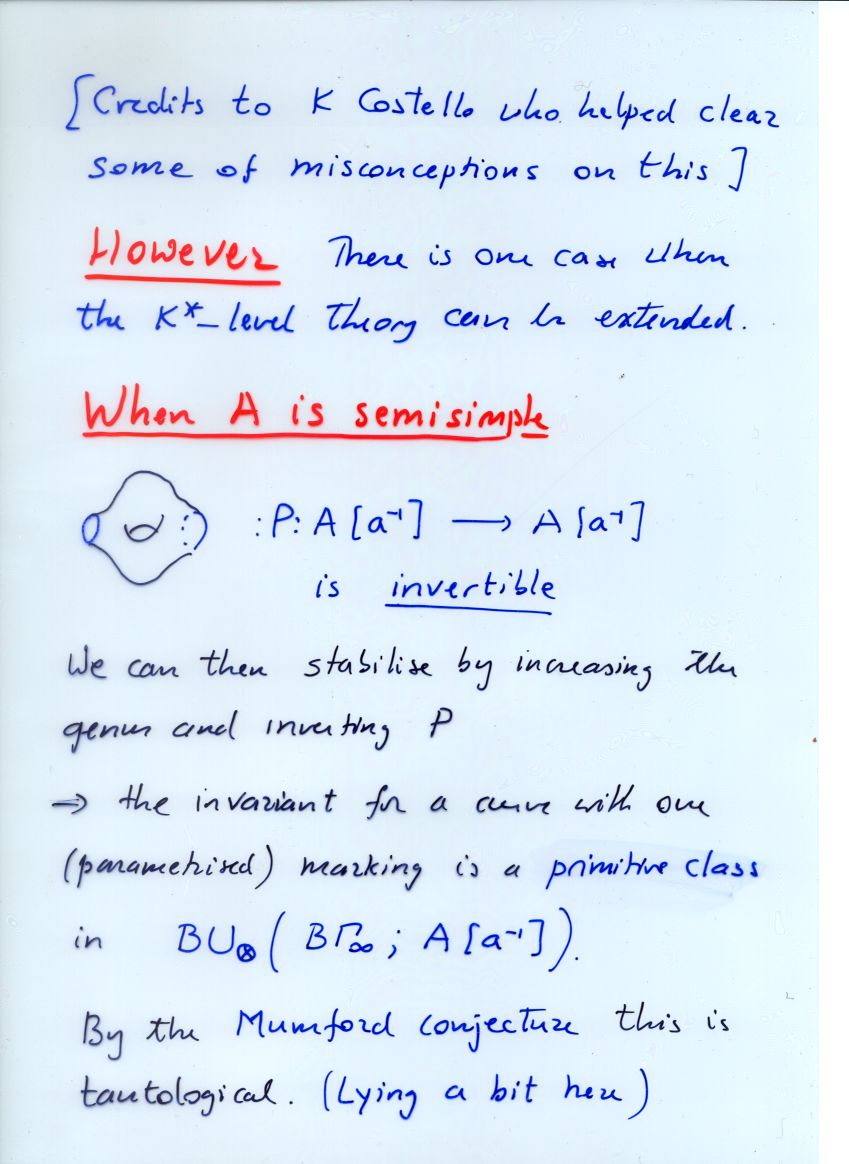 [Credits to K Costello who helped clear
some of misconceptions on this]
However There is one case when
the K*-level theory can be extended.
When A is semisimple
:P: A[a⁻¹] → A[a⁻¹]
is invertible
We can then stabilise by increasing the
genus and inverting P
⇒ the invariant for a curve with one
(parametrised) marking is a primitive class
in BU⊗(BΓ∞; A[a⁻¹]).
By the Mumford conjecture this is
tautological. (Lying a bit here)